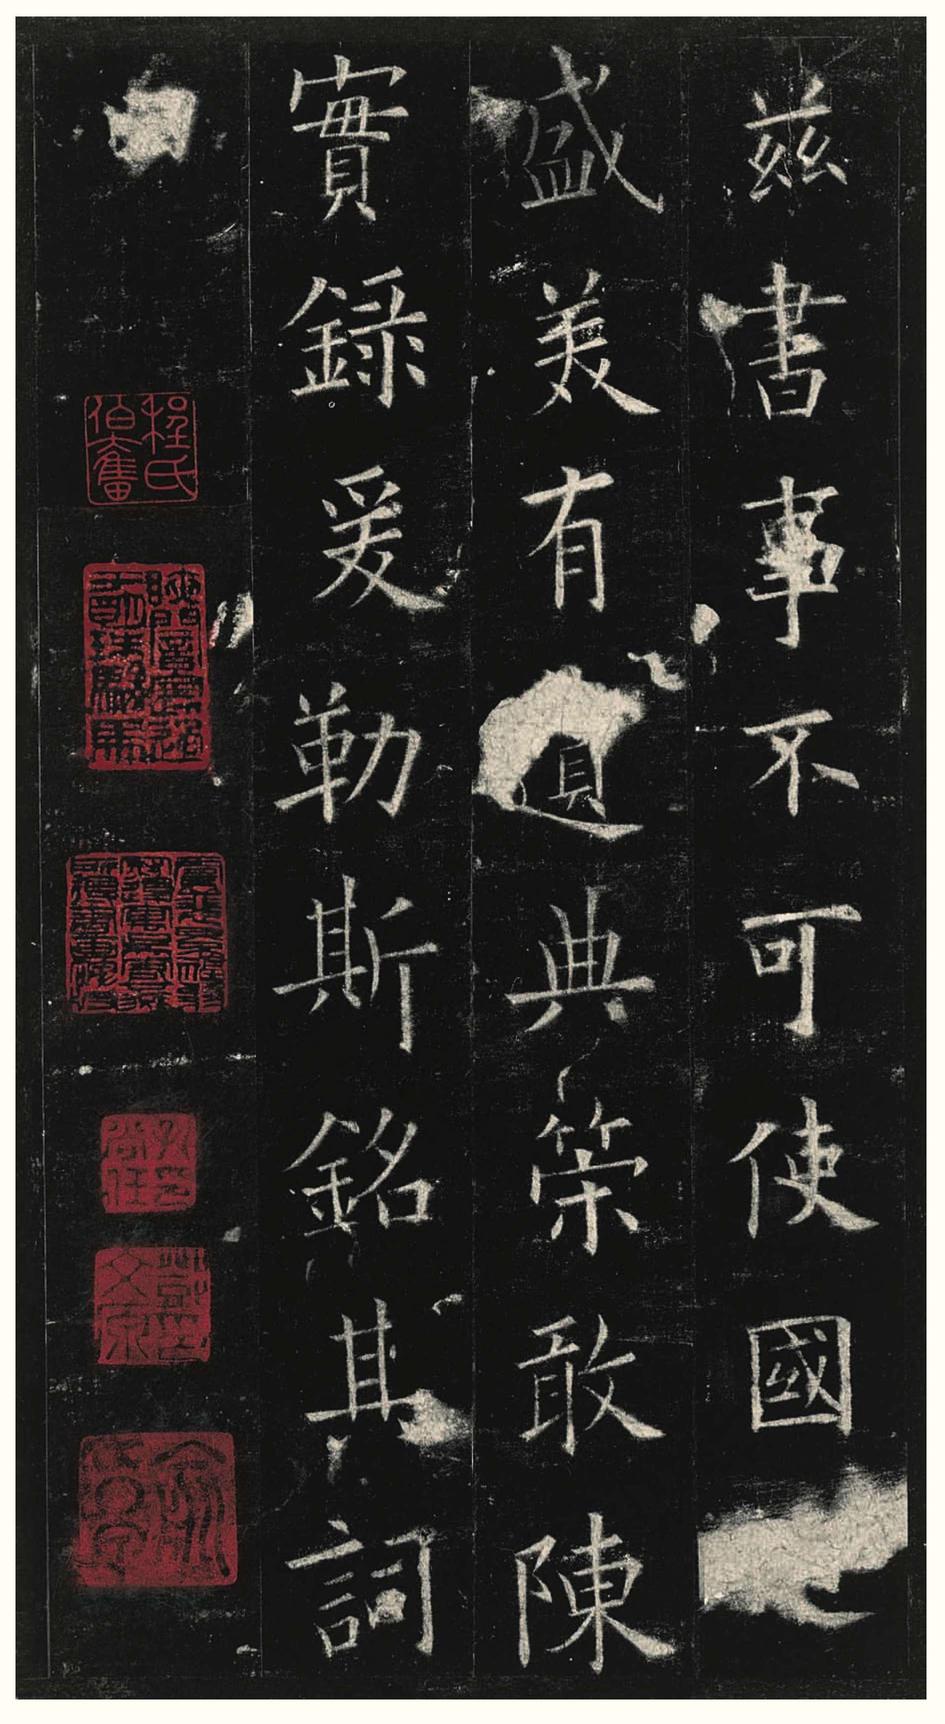 茲書事不可使國
盛美有道典策敢陳
實錄爰勒斯銘其詞
程氏伯奮